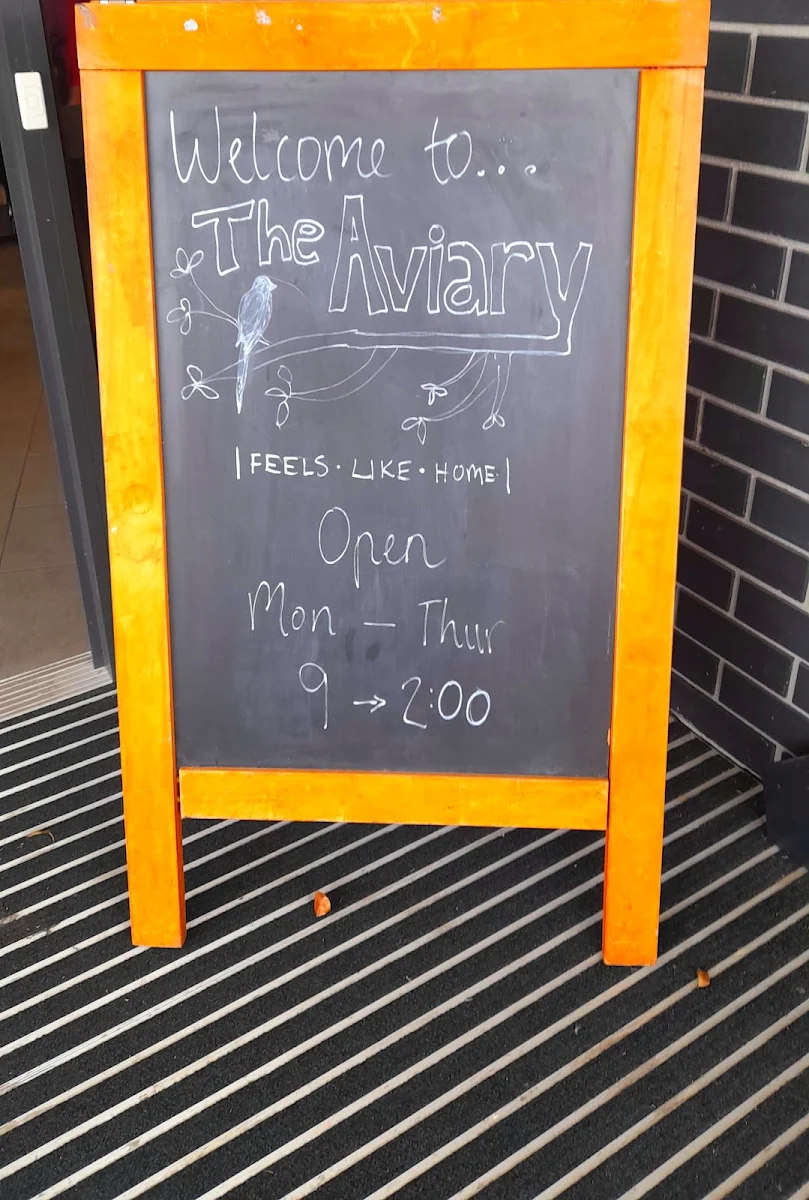 Welcome to...
The Aviary
|FEELS·LIKE·HOME|
Open
Mon — Thur
9 → 2:00